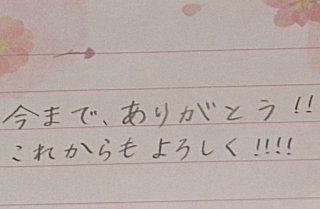 今まで、ありがとう!!
これからもよろしく!!!!